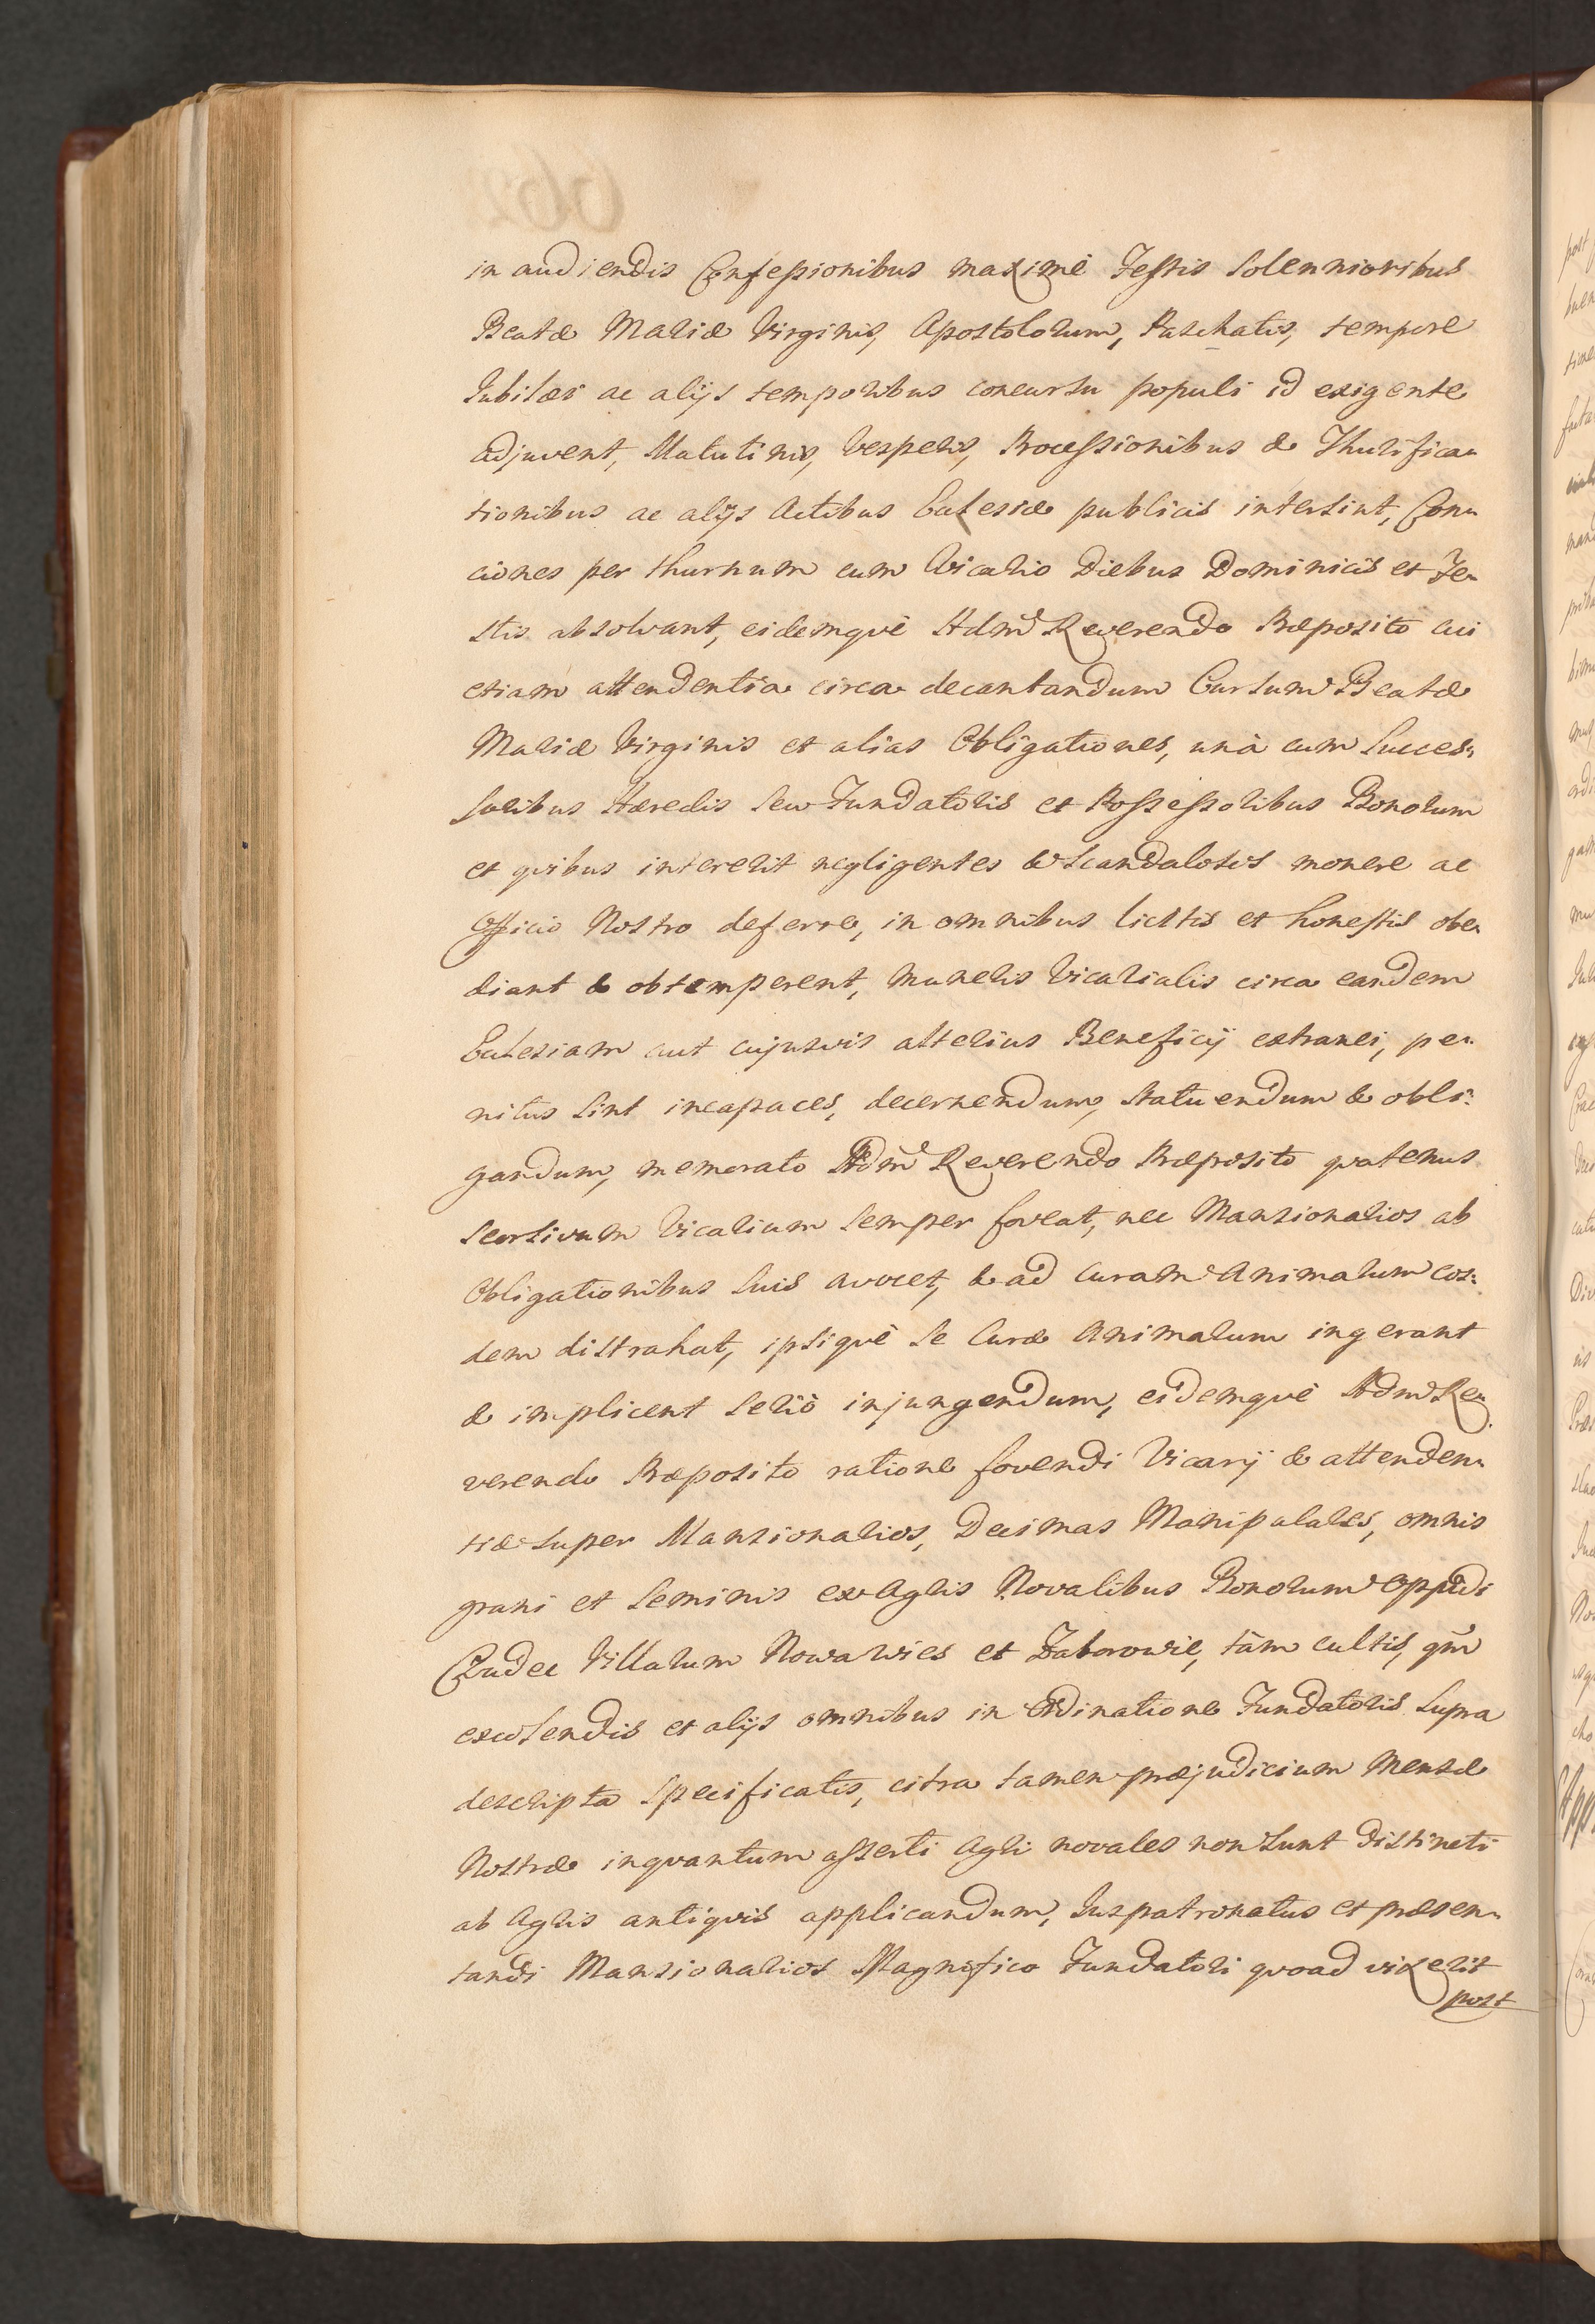 in audiendis Confessionibus maximè Festis solennioribus
Beatæ Mariæ Virginis, Apostolorum, Paschatis, tempore
Jubilæi ac alijs temporibus concursu populi id exigente
adjuvent, Matutinis, Vesperis, Processionibus & Thurifica„
tionibus ac alijs Actibus Ecclesiæ publicis intersint, Con„
ciones per thurnum cum Vicario Diebus Dominicis et Fe„
stis absolvant, eidemqvè Adm̃ Reverendo Præposito cui
etiam attendentia circa decantandum Cursum Beatæ
Mariæ Virginis et alias Obligationes, unà cum Succes„
soribus Hæredis seu Fundatoris et Possessoribus Bonorum
et qvibus intererit negligentes & scandalosos monere ac
Officio Nostro deferre, in omnibus licitis et honestis obe„
diant & obtemperent, muneris Vicarialis circa eandem
Ecclesiam aut cujusvis alterius Beneficij extranei, pe„
nitus sint incapaces, decernendum, statuendum & obli„
gandum, memorato Adm̃ Reverendo Præposito qvatenus
seorsivum Vicarium semper foveat, nec Mansionarios ab
Obligationibus suis avocet, & ad Curam Animarum eos„
dem distrahat, ipsiqvè se Curæ Animarum ingerant
& implicent seriò injungendum, eidemqvè Adm̃ Re„
verendo Præposito ratione fovendi Vicarij & attenden„
tiæ super Mansionarios, Decimas Manipulares, omnis
grani et seminis ex Agris Novalibus Bonorum Oppidi
Czudec Villarum Nowawies et Zaborowie, tàm cultis, qm̃
excolendis et alijs omnibus in Ordinatione Fundatoris supra
descripta specificatis, citra tamen præjudicium Mensæ
Nostræ inqvantum asserti Agri novales non sunt distincti
ab Agris antiqvis applicandum, Juspatronatus et præsen„
tandi Mansionarios Magnifico Fundatori qvoad vixerit
post